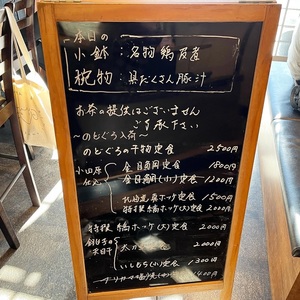 本日の
小鉢:名物鶏皮煮
椀物:具だくさん豚汁
お茶の提供はございません
ご了承下さい
〜のどぐろ入荷〜
のどぐろの干物定食 2500円
小田原
仕込
金目鯛開定食 1800円
金目鯛開(小)定食 1200円
北海道 真ホッケ定食 1500円
特撰縞ホッケ(小)定食 2000円
特撰 縞ホッケ(大)定食 2000円
定食 2000円
いしもち(小)定食 1300円
1400円